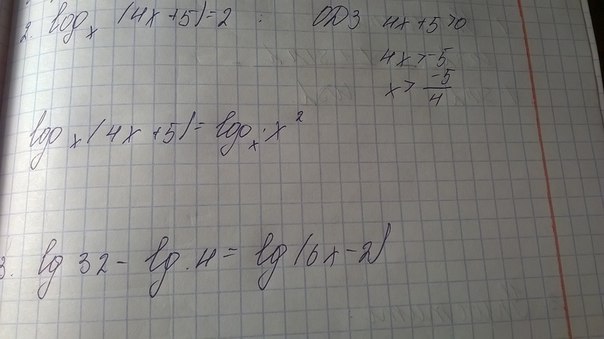 2. log_x (4x+5)=2 : ОДЗ 4x+5>0
4x>-5
x> -5/4
log_x (4x+5)= log_x x²
3. lg 32 - lg 4 = lg (6x-2)